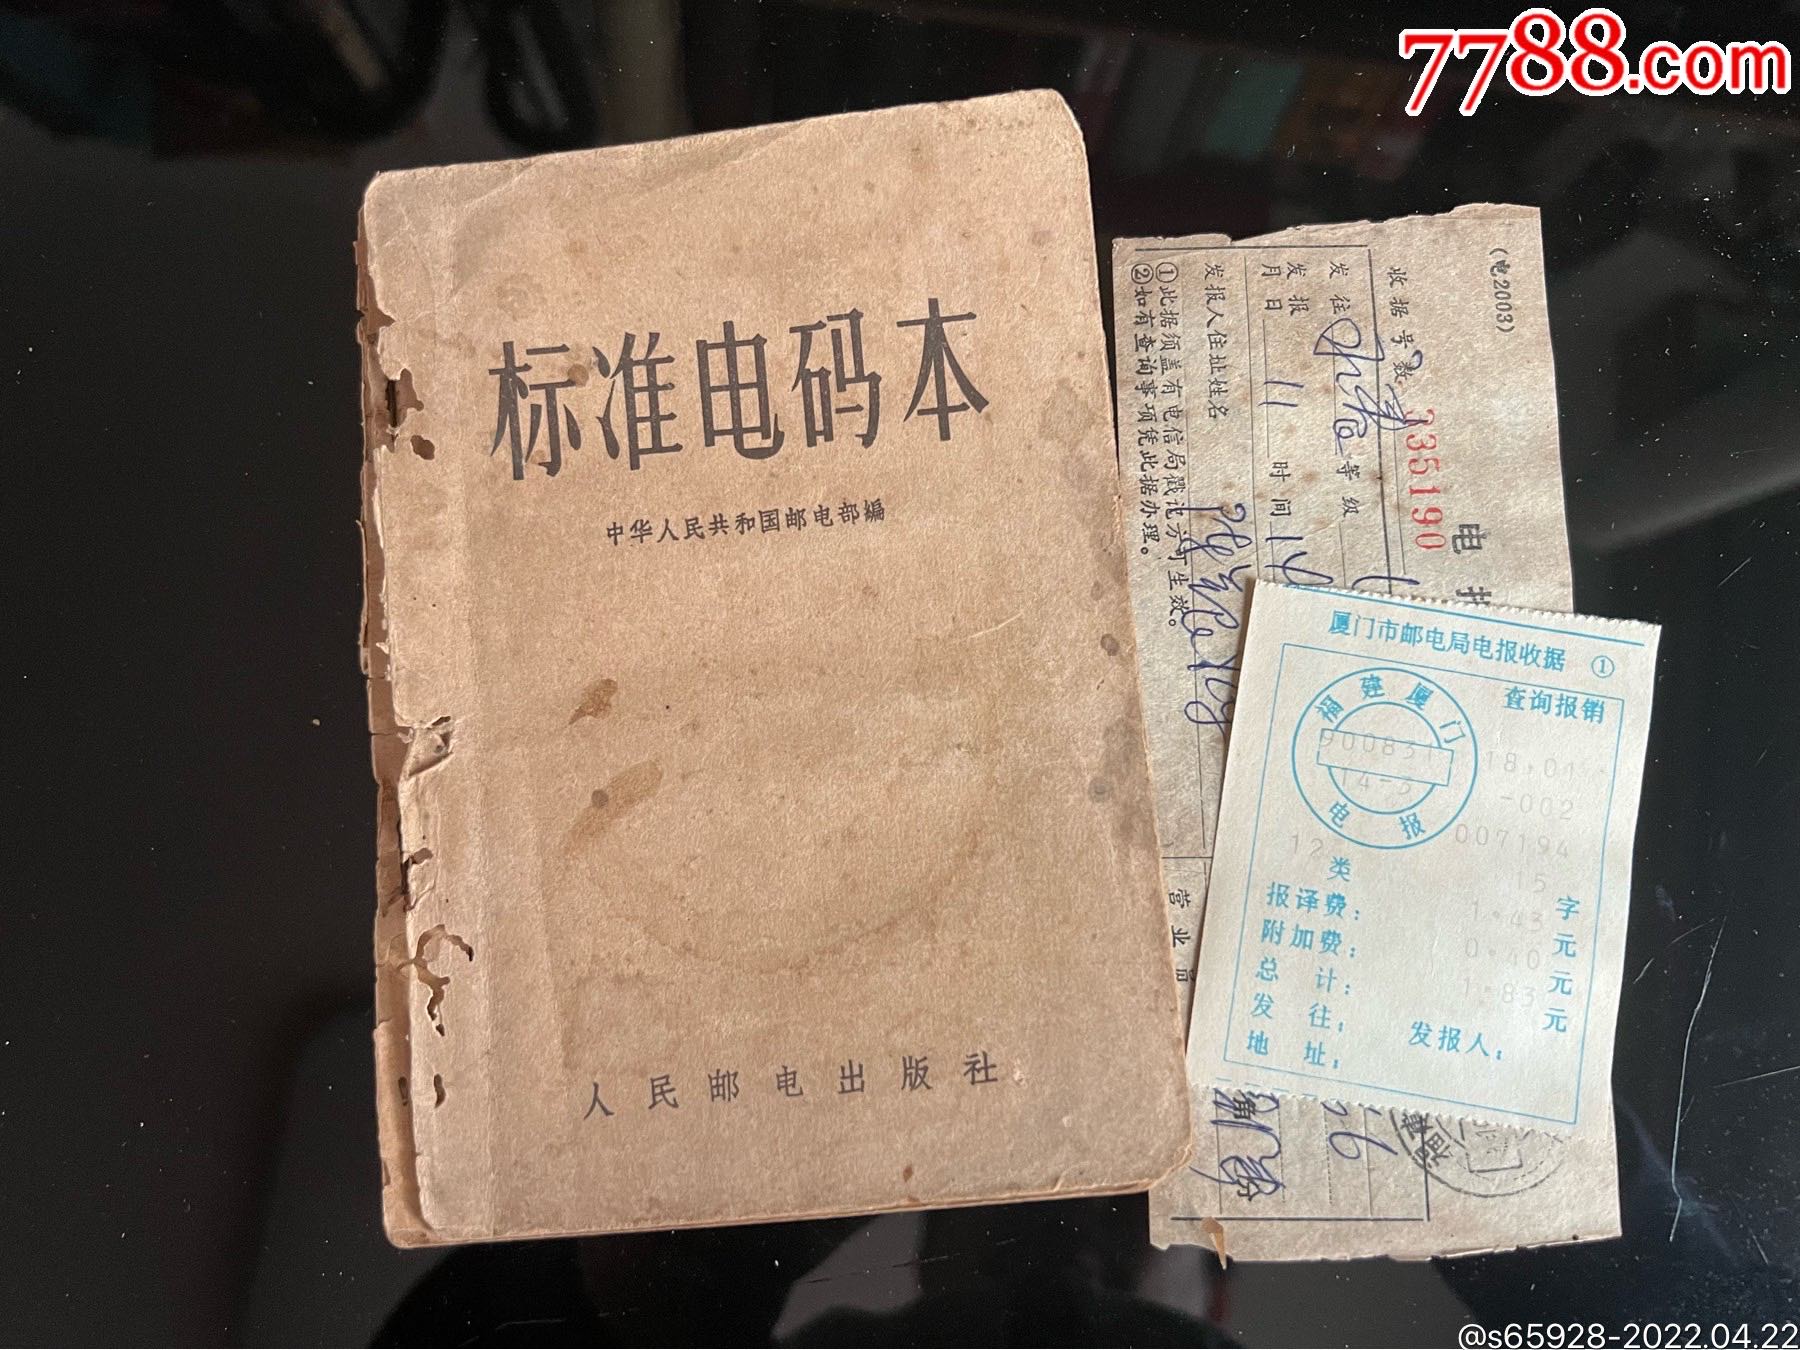 7788.com
标准电码本
中华人民共和国邮电部编
人民邮电出版社
(电2003)
电
收据号数 351190
发往
等级
发报
月日 11 时间 14
发报人住址姓名
①此据须盖有电信局戳记方可生效。
②如有查询事项凭此据办理。
营业员
26
厦门市邮电局电报收据 ①
查询报销
福建厦门
900831 18.01
14-3 -002
电报
007194
12 类 15 字
报译费: 1.43 元
附加费: 0.40 元
总计: 1.83 元
发往:
发报人:
地址:
@s65928-2022.04.22